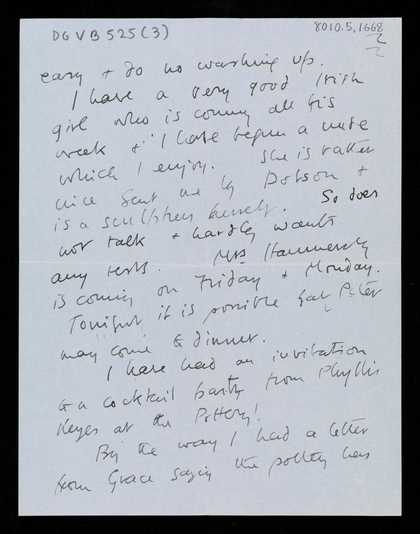 DG VB 525 (3)
8010.5.1668
2
easy + do no washing up.
I have a very good Irish
girl who is coming all this
week + I have begun a nude
which I enjoy. She is rather
nice sent me by Dobson +
is a sculptress herself. So does
not talk + hardly wants
any rests. Mrs Hammersley
is coming on Friday + Monday.
Tonight it is possible that Peter
may come to dinner.
I have had an invitation
to a cocktail party from Phyllis
Keyes at the Pottery!
By the way I had a letter
from Grace saying the pottery has